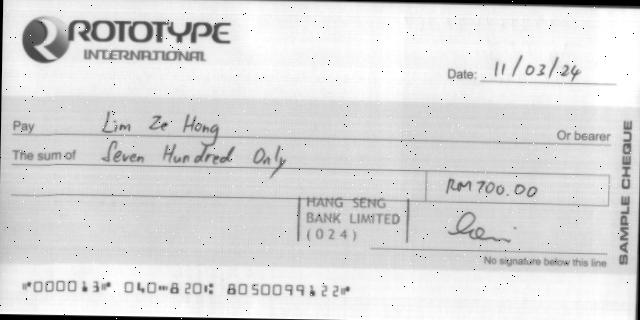 ROTOTYPE
INTERNATIONAL
Date: 11/03/24
Pay Lim Ze Hong Or bearer
The sum of Seven Hundred Only
RM700.00
HANG SENG
BANK LIMITED
(024)
No signature below this line
SAMPLE CHEQUE
⑈000013⑈ 040⑉820⑆ 8050099122⑈